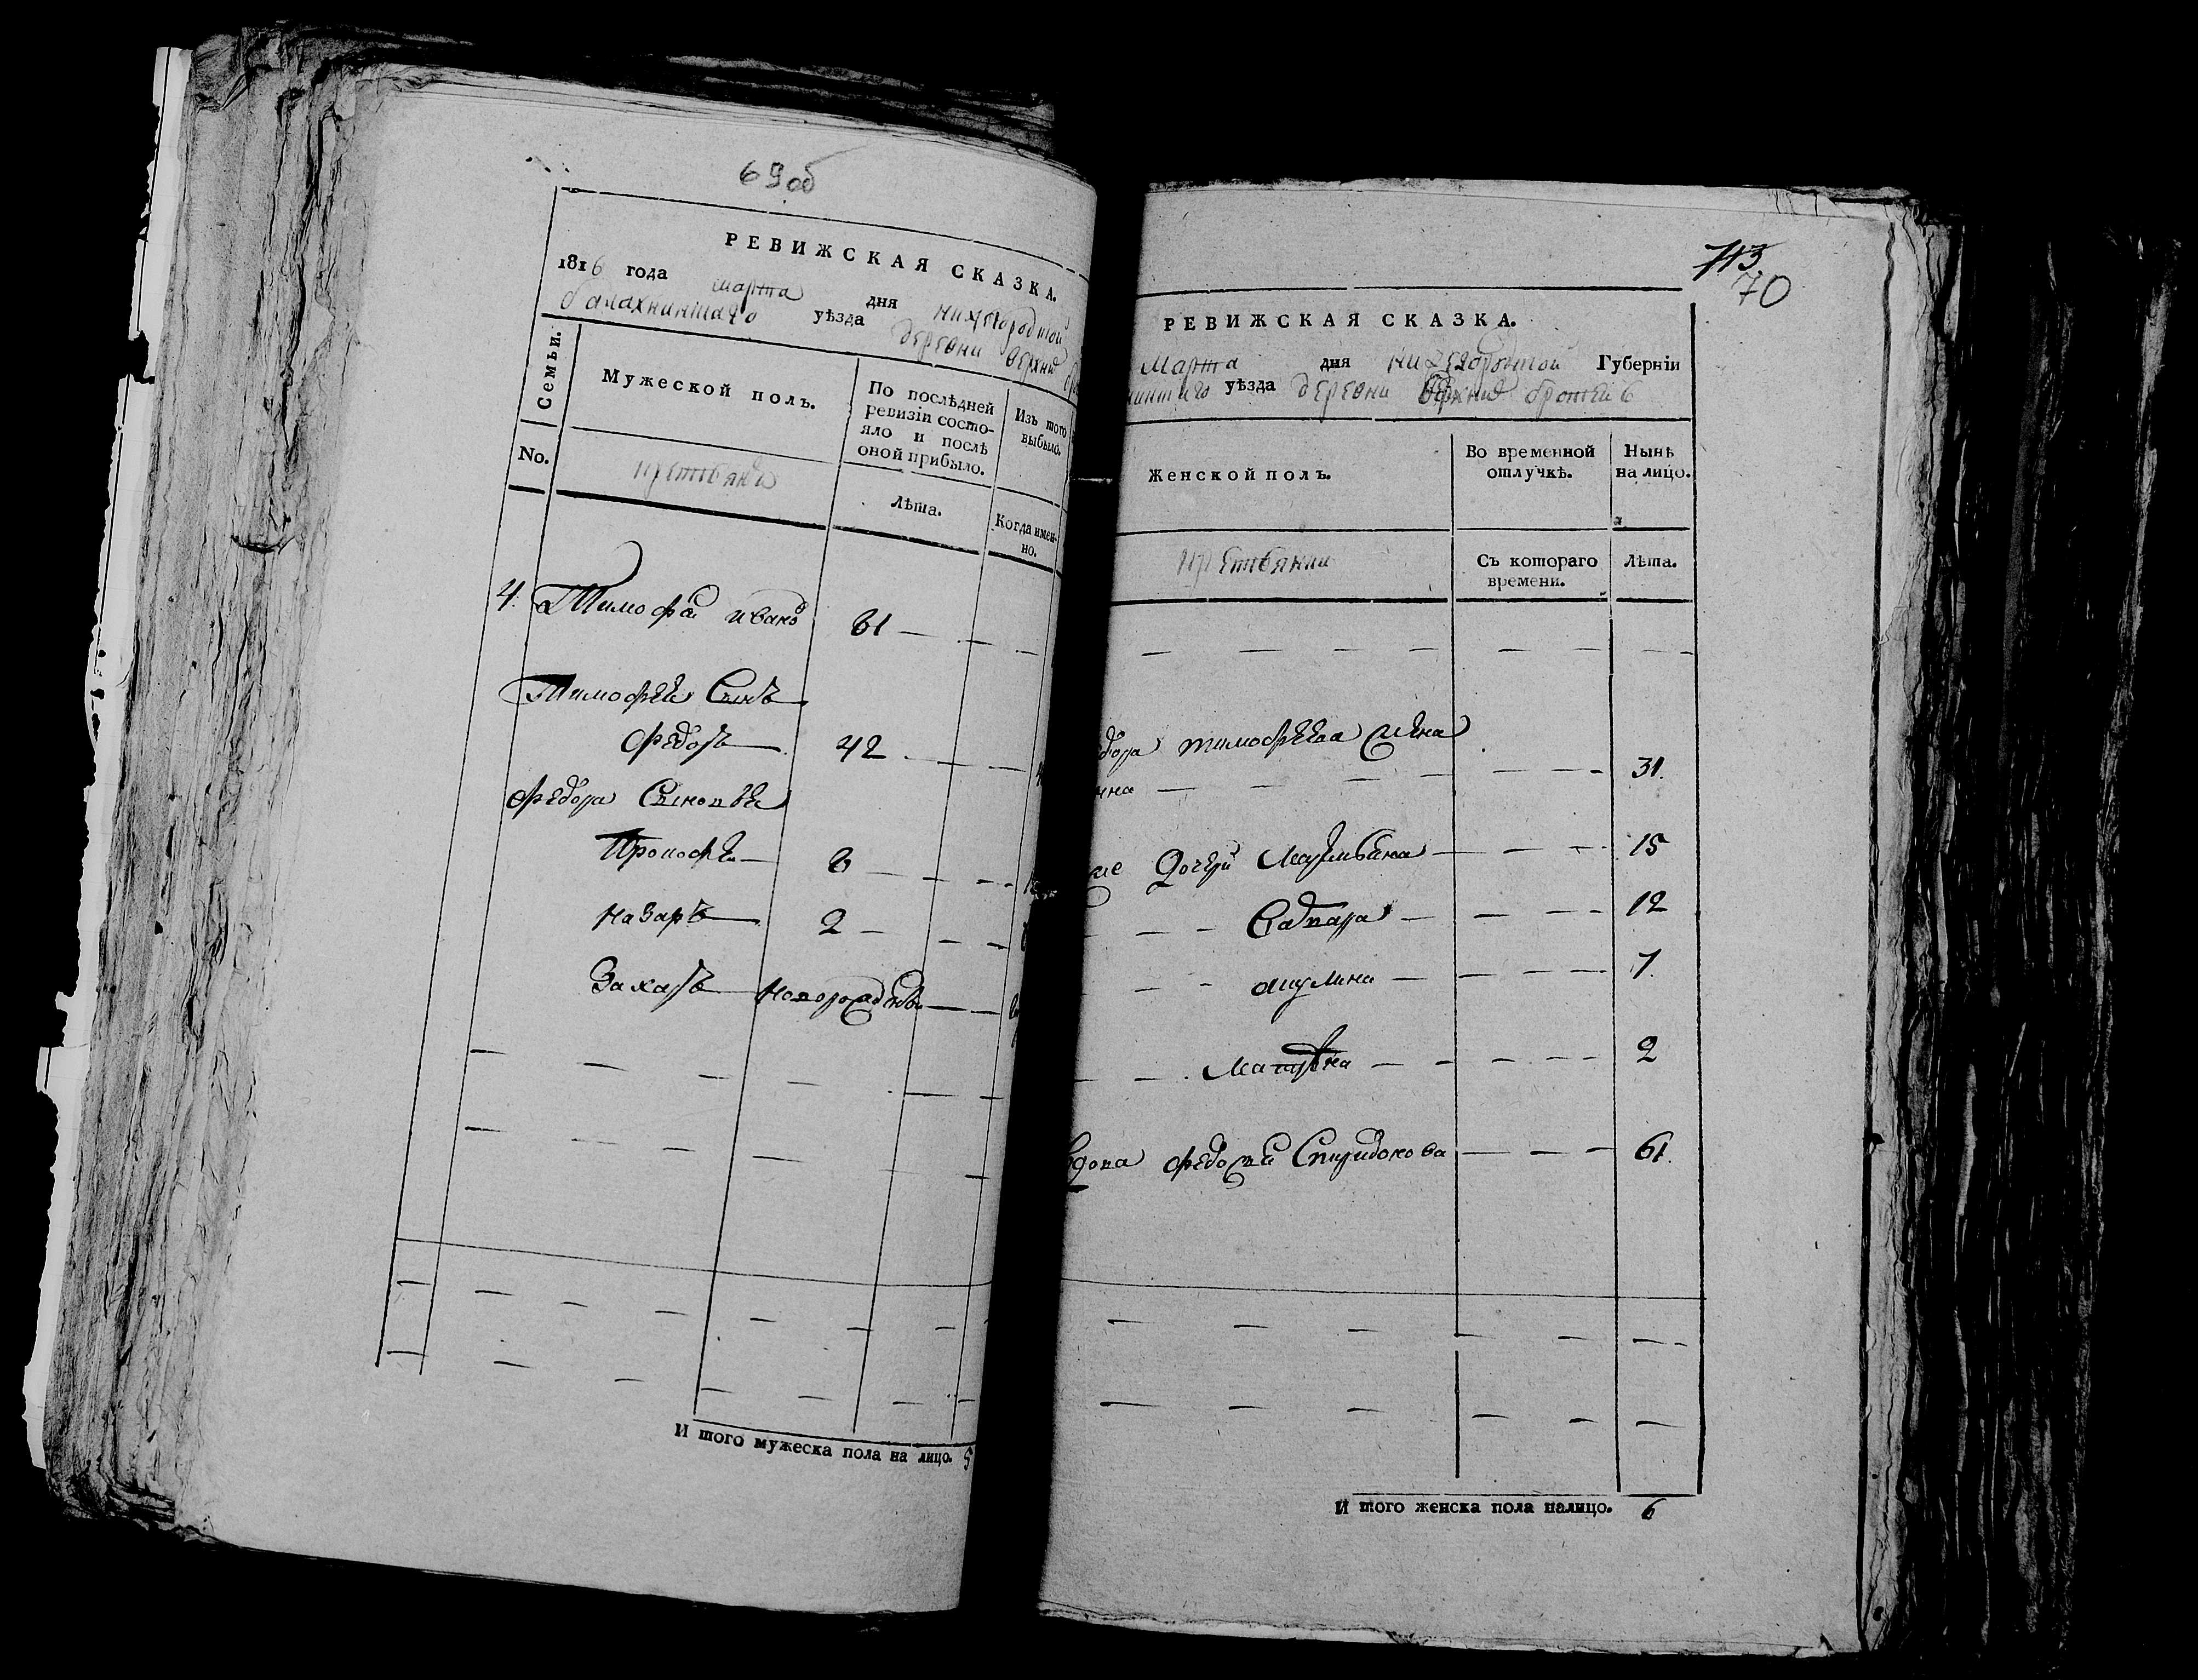 69об
РЕВИЖСКАЯ СКАЗКА.
1816 года марта дня нижегородской
балахнинскаго уѣзда деревни верхнѣ
Семьи.
No.
Мужеской полъ.
крестьянѣ
По послѣдней ревизіи состо-
яло и послѣ
оной прибыло.
Лѣта.
Изъ того
выбыло.
Когда имен-
но.
4. Тимофей ивано 61
Тимофея Сынъ
Федоръ 42
Федора Сыновья
Прокофей 6
Назаръ 2
Захаръ новорожденъ
И того мужеска пола на лицо. 5
713
70
РЕВИЖСКАЯ СКАЗКА.
Марта дня нижегородской Губерніи
уѣзда деревни верхнѣ
Женской полъ.
крестьянки
Во временной
отлучкѣ.
Съ котораго
времени.
Нынѣ
на лицо.
Лѣта.
дора тимофеева жена
нна 31.
Дочери Марья 15
12
акулина 7.
Матрена 2
вдова федосья Спиридонова 61.
И того женска пола налицо. 6